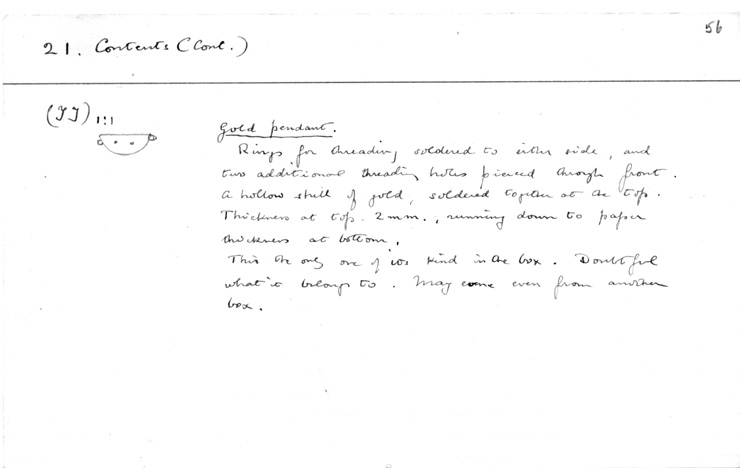 56
21. Contents (Cont.)
(JJ) 1:1
Gold pendant.
Rings for threading soldered to either side, and
two additional threading holes pierced through front.
A hollow shell of gold, soldered together at the top.
Thickness at top. 2 mm., running down to paper
thickness at bottom.
This the only one of its kind in the box. Doubtful
what it belongs to. May come even from another
box.